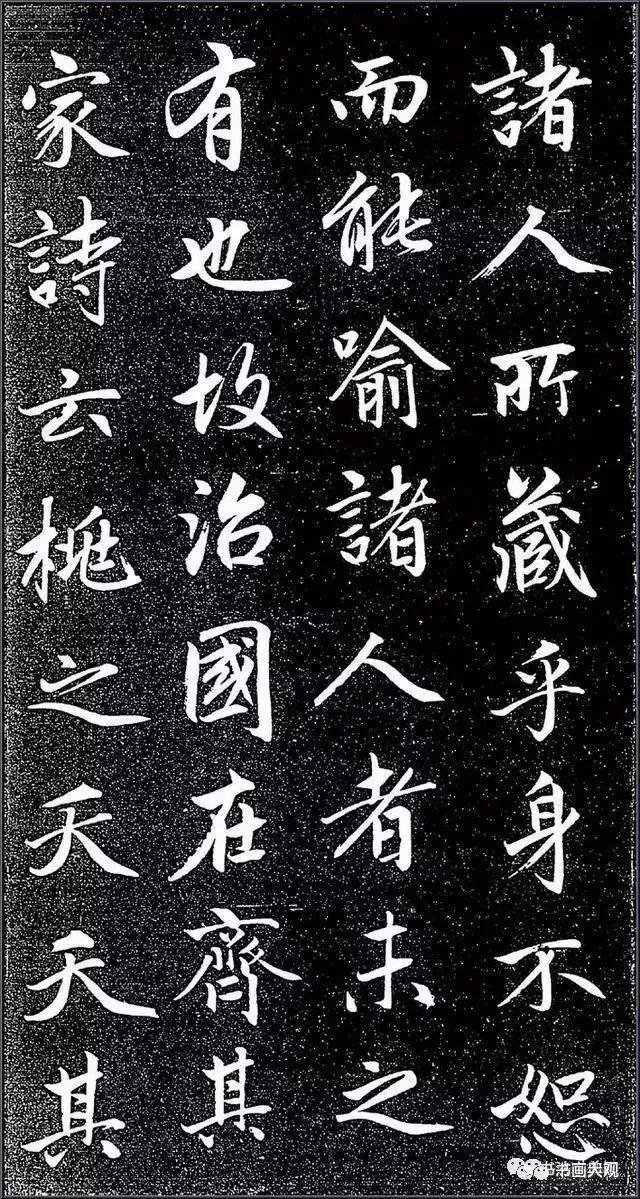 諸人所藏乎身不恕
而能喻諸人者未之
有也故治國在齊其
家詩云桃之夭夭其